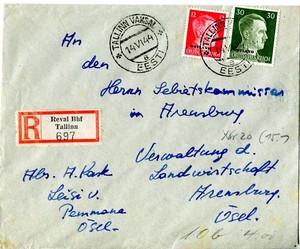 TALLINN VAKSAL
14.VI.44
a
EESTI
TALLINN
EESTI
12
30
An
den
Herrn Gebietskommissar
in Arensburg
R
Reval Bhf
Tallinn
697
Verwaltung d.
Landwirtschaft
Arensburg
Ösel.
Abs. A. Kask
Leisi v.
Pammana
Ösel.